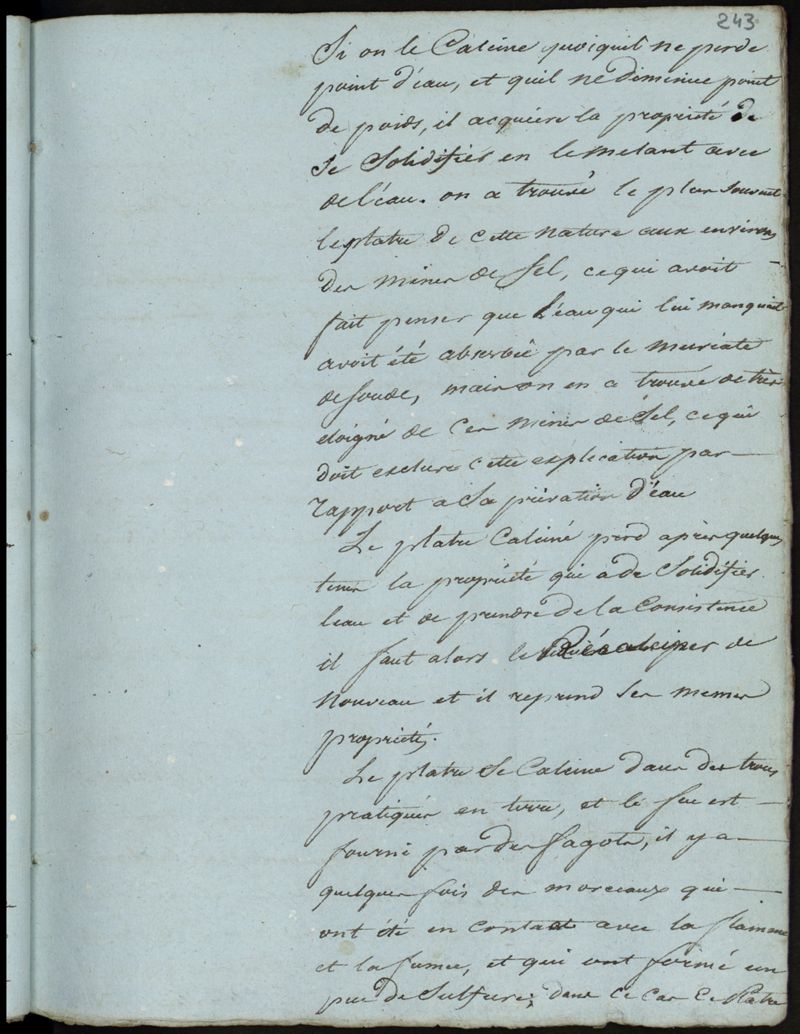 243
Si on le Calcine quoiquil ne perde
point d'eau, et quil ne diminue point
de poids, il acquiere la propriété de
se Solidifier en le melant avec
de l'eau. on a trouvé le plus souvent
le platre de cette nature aux environs
des mines de Sel, ce qui avoit
fait penser que l'eau qui lui manquait
avoit été absorbée par le muriate
de soude, mais on en a trouvé de très
eloigné de ces mines de Sel, ce qui
doit exclure cette explication par
rapport a Sa privation d'eau
Le platre Calciné perd après quelques
tems la propriété qui a de Solidifier
leau et de prendre de la Consistence
il faut alors le Récalciner de
nouveau et il reprend ses memes
propriétés.
Le platre se Calcine dans des trous
pratiqués en terre, et le feu est
fourni par des fagots, il y a
quelques fois des morceaux qui
ont été en contact avec la flamme
et la fumée, et qui ont formé un
peu de Sulfure; dans ce cas Ce Platre